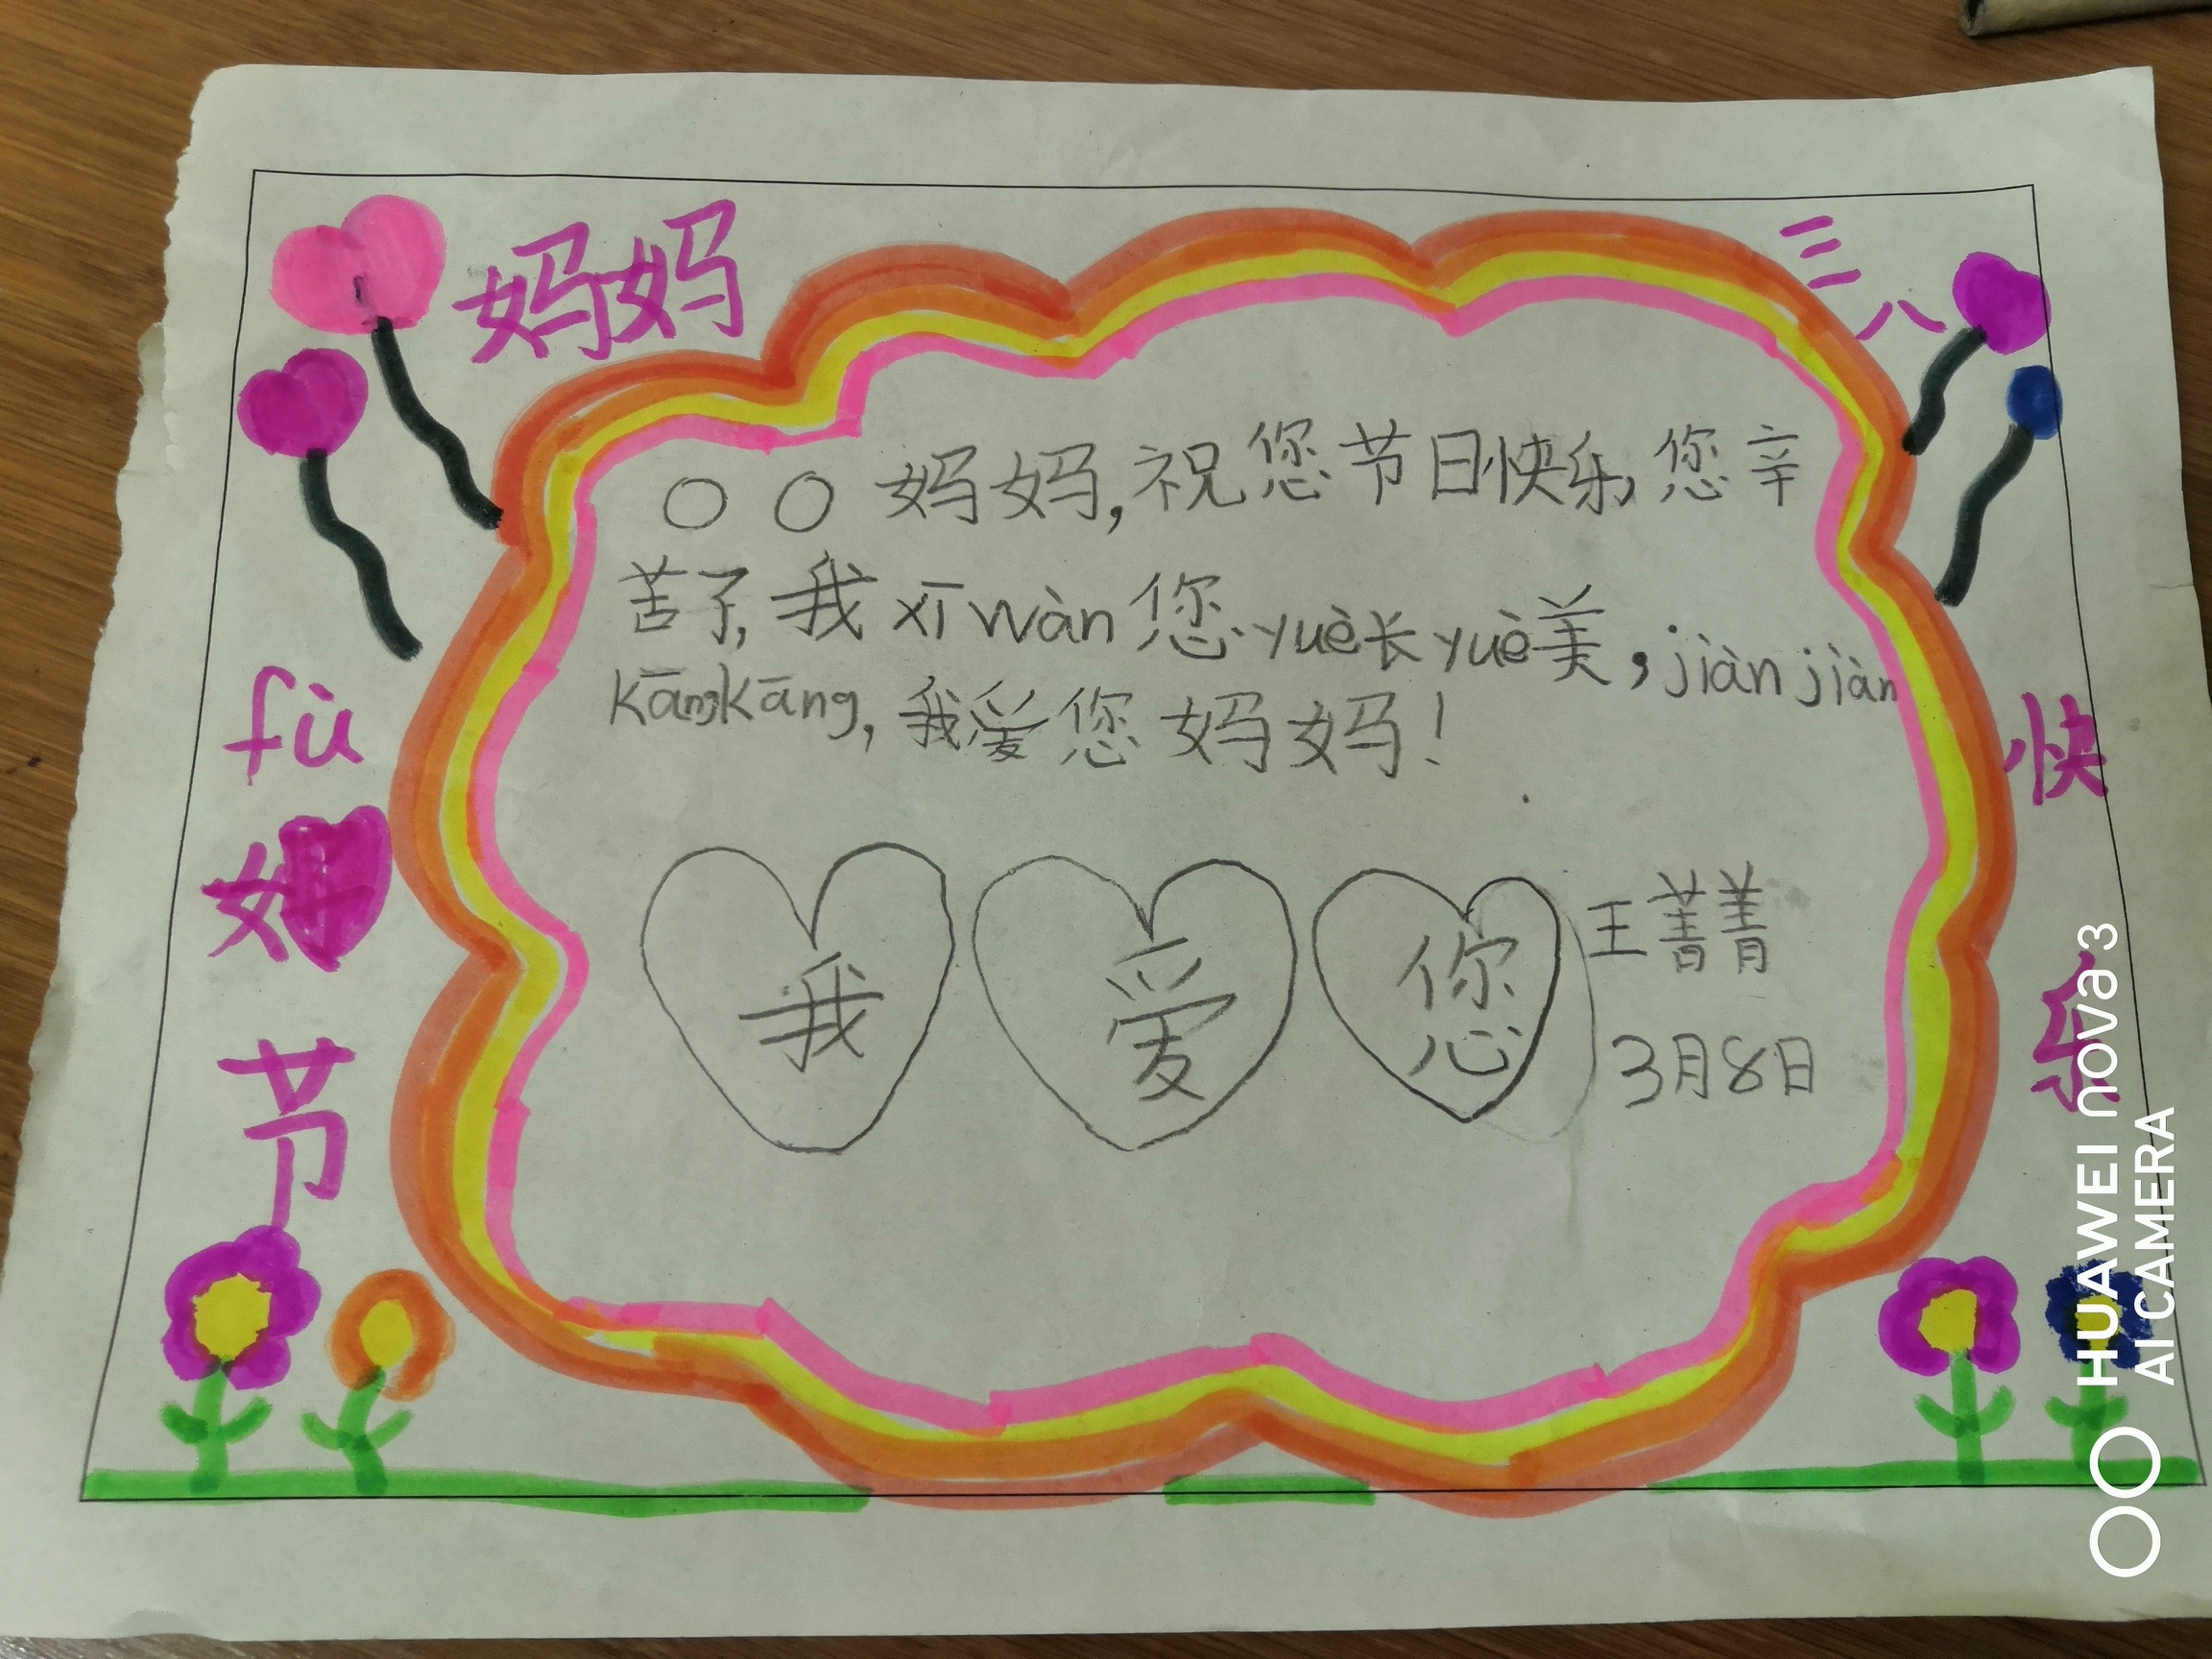 妈妈
三八
○○妈妈,祝您节日快乐,您辛
苦了,我xīwàn您yuè长yuè美,jiànjiàn
kāngkāng,我爱您妈妈!
fù
节
快
乐
我 爱 您
王菁菁
3月8日
HUAWEI nova 3
AI CAMERA